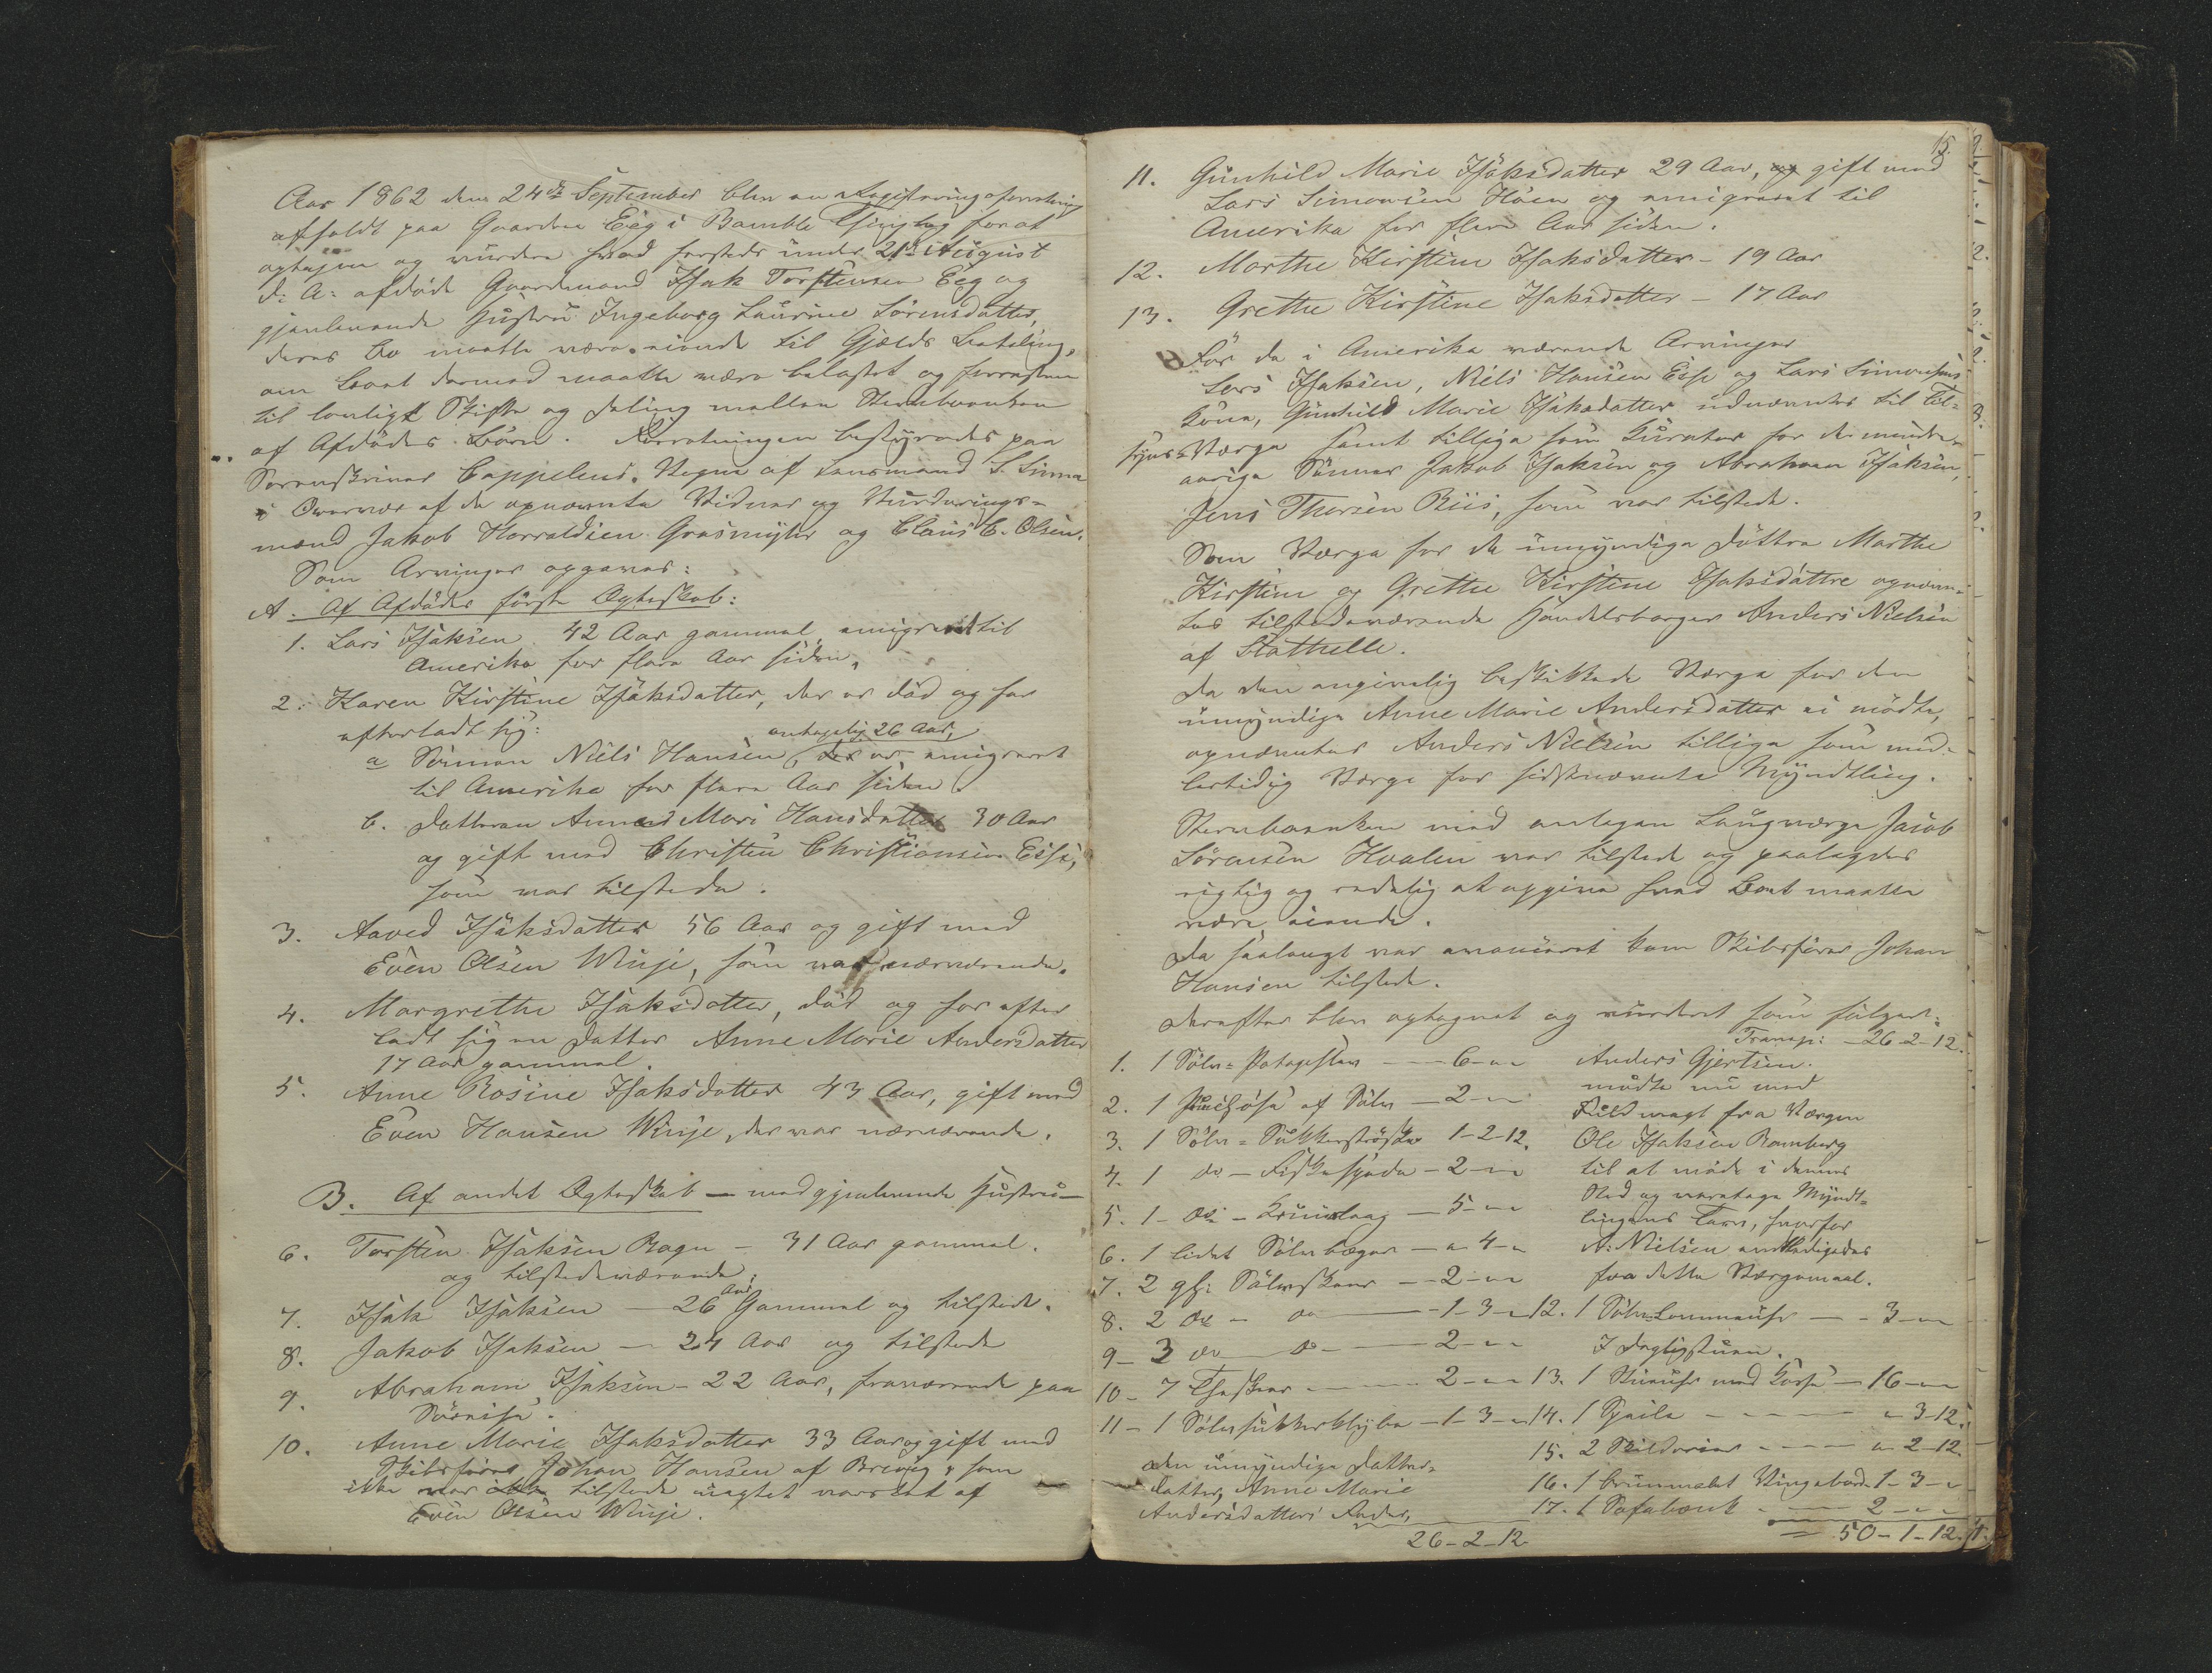 Aar 1862 den 24de September blev en Registreringsforretning
afholdt paa Gaarden Eeg i Bamble Thinglag for at
optegne og vurdere hvad henstede under 21de August
d: A: afdøde Gaardmand Isak Torstensen Eeg og
gjenlevende Hustru Ingeborg Laurine Sörensdatter,
deres Bo maatte være eiende til Gjælds Betaling,
om Boet dermed maatte være belastet og forresten
til lovligt Skifte og Deling mellem Sterboenken
og Afdödes Börn. Forretningen bestyredes paa
Sorenskriver Cappelens Vegne af Lensmand S. Linna
i Overvær af de opnævnte Vidner og Vurderings-
mænd Jakob Harraldsen Grasmyhr og Claus C. Olsen.
Som Arvinger opgaves:
A. Af Afdödes förste Ægteskab:
1. Lars Isaksen 42 Aar gammel, emigreret til
Amerika for flere Aar siden.
2. Karen Kirstine Isaksdatter, der er död og har
efterladt sig:
antagelig 26 Aar,
a Sönnen Niels Hansen, der er emigreret
til Amerika for flere Aar siden.
b. Datteren Anne Mari Hansdatter 30 Aar
og gift med Christen Christiansen Esse,
som var tilstede.
3. Aaved Isaksdatter 56 Aar og gift med
Even Olsen Winje, som var nærværende.
4. Margrethe Isaksdatter, död og har efter
ladt sig en Datter Anne Marie Andersdatter
17 Aar gammel.
5. Anne Rosine Isaksdatter 43 Aar, gift med
Even Hansen Winje, der var nærværende.
B. Af andet Ægteskab – med gjenlevende Hustru –
6. Torsten Isaksen Ragn – 31 Aar gammel.
og tilstedeværende;
7. Isak Isaksen – 26 Aar Gammel og tilstede.
8. Jakob Isaksen – 24 Aar og tilstede
9. Abraham Isaksen – 22 Aar, fraværende paa
Söreise.
10. Anne Marie Isaksdatter 33 Aar og gift med
Skibsförer Johan Hansen af Brevig, som
ikke var tilstede uagtet varslet af
Even Olsen Winje.
15.
11. Gunhild Marie Isaksdatter 29 Aar, og gift med
Lars Simonsen Höen og emigreret til
Amerika for flere Aar siden.
12. Marthe Kirstine Isaksdatter – 19 Aar
13. Grethe Kirstine Isaksdatter – 17 Aar
For de i Amerika værende Arvinger
Lars Isaksen, Niels Hansen Esse og Lars Simonsens
Kone, Gunhild Marie Isaksdatter udnævntes til Til-
syns-Værge samt tillige som Kurator for de mindre-
aarige Sönner Jakob Isaksen og Abraham Isaksen,
Jens Thorsen Riis, som var tilstede.
Som Værge for de umyndige Döttre Marthe
Kirstine og Grethe Kirstine Isaksdöttre opnævn-
tes tilstedeværende Handelsborger Anders Nielsen
af Stathelle.
Da den angivelig beskikkede Værge for den
umyndige Anne Marie Andersdatter ei mödte,
opnævntes Anders Nielsen tillige som mid-
lertidig Værge for sidstnævnte Myndtling.
Sterboenken med antagen Laugværge Jacob
Sörensen Hvalen var tilstede og paalagdes
rigtig og redelig at opgive hvad Boet maatte
være eiende.
Da saalangt var avanceret kom Skibsförer Johan
Hansen tilstede.
Derefter blev optegnet og vurderet som fölger:
1. 1 Sölv-Potageskee – – 6 – " "
2. 1 af Sölv – 2 – "
3. 1 Sölv-Sukkerströske 1-2-12.
4. 1 do – Fiskespade – 2 – " "
5. 1 – do – – 5 – " "
6. 1 lidet Sölvbæger – " 4 – "
7. 2 gl: Sölvskeer – – 2 – " "
8. 2 do – do – 1 – 3 – "
9 – 3 do – do – 2 – " "
10 – 7 Theskeer – 2 – " "
11 – 1 Sölvsukkerklype – 1 – 3 – "
Den umyndige Datter-
datter, Anne Marie
Andersdatters Fader,
26-2-12
Transp: – 26-2-12.
Anders Gjertsen.
mödte nu med
Fuldmagt fra Værgen
Ole Isaksen Romberg
til at möde i dennes
Sted og varetage Myndt-
lingens Tarv, hvorfor
A: Nielsen entledigedes
fra dette Værgemaal.
12. 1 Sölvlommeuhr – – 3 – " "
I Dagligstuen.
13. 1 Stueuhr med Kasse – 16 – " "
14. 1 Speile – – " 3-12.
15. 2 Skilderier – – " 2-12
16. 1 brunmalet Vingebord 1 – 3 – "
17. 1 Sofabænk – 2 – " "
50 – 1 – 12.